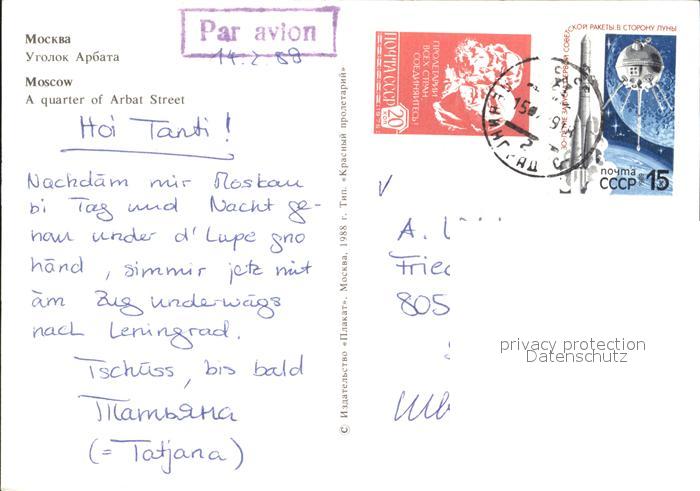 Москва
Уголок Арбата
Moscow
A quarter of Arbat Street
Par avion
14.2.89
Hoi Tanti!
Nachdäm mir Moskau
bi Tag und Nacht ge-
nau under d'Lupe gno
händ, simmir jetz mit
äm Zug underwägs
nach Leningrad.
Tschüss, bis bald
Татьяна
(= Tatjana)
© Издательство «Плакат». Москва. 1988 г. Тип. «Красный пролетарий»
ПОЧТА СССР
20 КОП
ПРОЛЕТАРИИ
ВСЕХ СТРАН
СОЕДИНЯЙТЕСЬ!
РАКЕТЫ В СТОРОНУ ЛУНЫ
почта
СССР 15
A.
Frie
805
privacy protection
Datenschutz